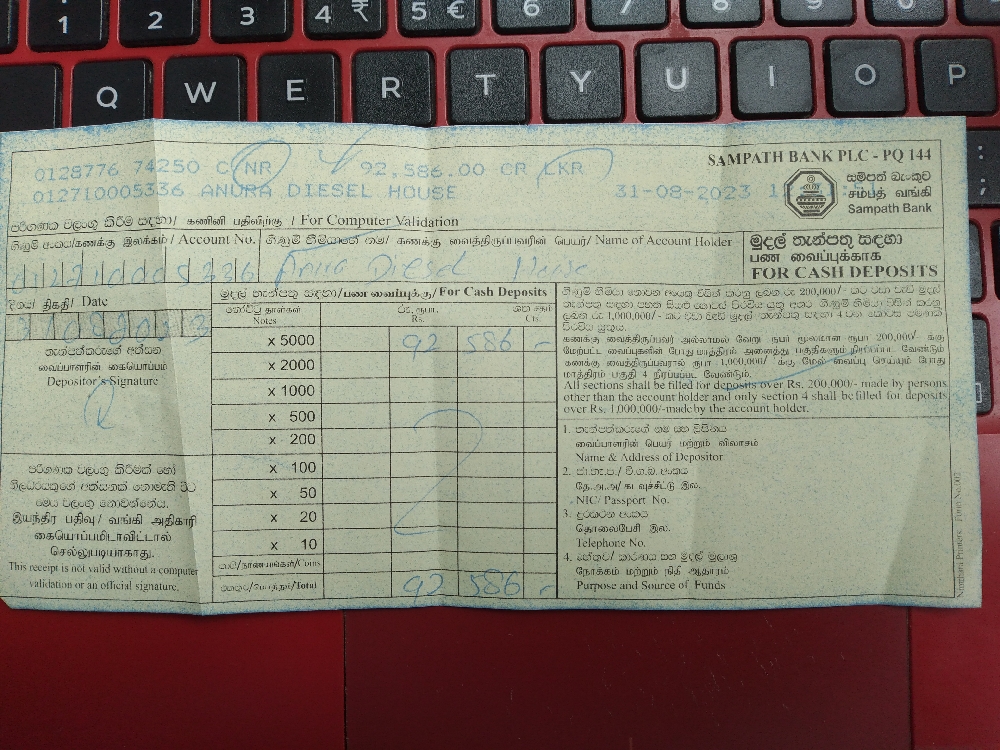 0128776 74250 C NR 92,586.00 CR LKR
SAMPATH BANK PLC - PQ 144
012710005336 ANURA DIESEL HOUSE 31-08-2023
සම්පත් බැංකුව
சம்பத் வங்கி
Sampath Bank
පරිගණක වලංගු කිරීම සඳහා/ கணினி பதிவிற்கு / For Computer Validation
ගිණුම් අංකය/கணக்கு இலக்கம் / Account No.
ගිණුම් හිමියාගේ නම/ கணக்கு வைத்திருப்பவரின் பெயர்/ Name of Account Holder
Diesel House
මුදල් තැන්පතු සඳහා
பண வைப்புக்காக
FOR CASH DEPOSITS
දිනය/ திகதி/ Date
මුදල් තැන්පතු සඳහා/பண வைப்புக்கு/ For Cash Deposits
නෝට්ටු தாள்கள்
Notes
රු. ரூபா.
Rs.
ශත சதம்
Cts.
x 5000 92 586 -
x 2000
x 1000
x 500
x 200
x 100
x 50
x 20
x 10
කාසි/நாணயங்கள்/Coins
එකතුව/மொத்தம்/Total 92 586 -
තැන්පත්කරුගේ අත්සන
வைப்பாளரின் கையொப்பம்
Depositor's Signature
පරිගණක වලංගු කිරීමක් හෝ
නිලධරයකුගේ අත්සනක් නොමැති විට
මෙය වලංගු නොවන්නේය.
இயந்திர பதிவு/ வங்கி அதிகாரி
கையொப்பமிடாவிட்டால்
செல்லுபடியாகாது.
This receipt is not valid without a computer
validation or an official signature.
கணக்கு வைத்திருப்பவர் அல்லாமல் வேறு நபர் மூலமான ரூபா 200,000/- க்கு
மேற்பட்ட வைப்புகளின் போது மாத்திரம் அனைத்து பகுதிகளும் நிரப்பப்பட வேண்டும்
கணக்கு வைத்திருப்பவரால் ரூபா 1,000,000/- க்கு மேல் வைப்பு செய்யும் போது
மாத்திரம் பகுதி 4 நிரப்பப்பட வேண்டும்.
All sections shall be filled for deposits over Rs. 200,000/- made by persons
other than the account holder and only section 4 shall be filled for deposits
over Rs. 1,000,000/-made by the account holder.
1. තැන්පත්කරුගේ නම සහ ලිපිනය
வைப்பாளரின் பெயர் மற்றும் விலாசம்
Name & Address of Depositor
2. ජා.හැ.ප./ වි.ග.බ. අංකය
தே.அ.அ/ கடவுச்சீட்டு இல.
NIC/ Passport No.
3. දුරකථන අංකය
தொலைபேசி இல.
Telephone No.
4. හේතුව/ කාරණය සහ මුදල් මූලාශ්‍ර
நோக்கம் மற்றும் நிதி ஆதாரம்
Purpose and Source of Funds
1 2 3 4 ₹ 5 € 6 7 8 9 0
Q W E R T Y U I O P